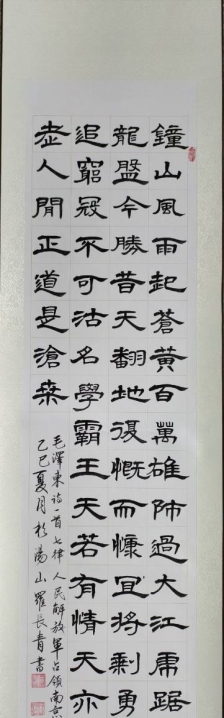 鐘山風雨起蒼黃百萬雄師過大江虎踞
龍盤今勝昔天翻地復慨而慷宜將剩勇
追窮寇不可沽名學霸王天若有情天亦
老人間正道是滄桑
毛澤東詩一首七律 人民解放軍占領南
乙巳夏月於陽山羅長青書